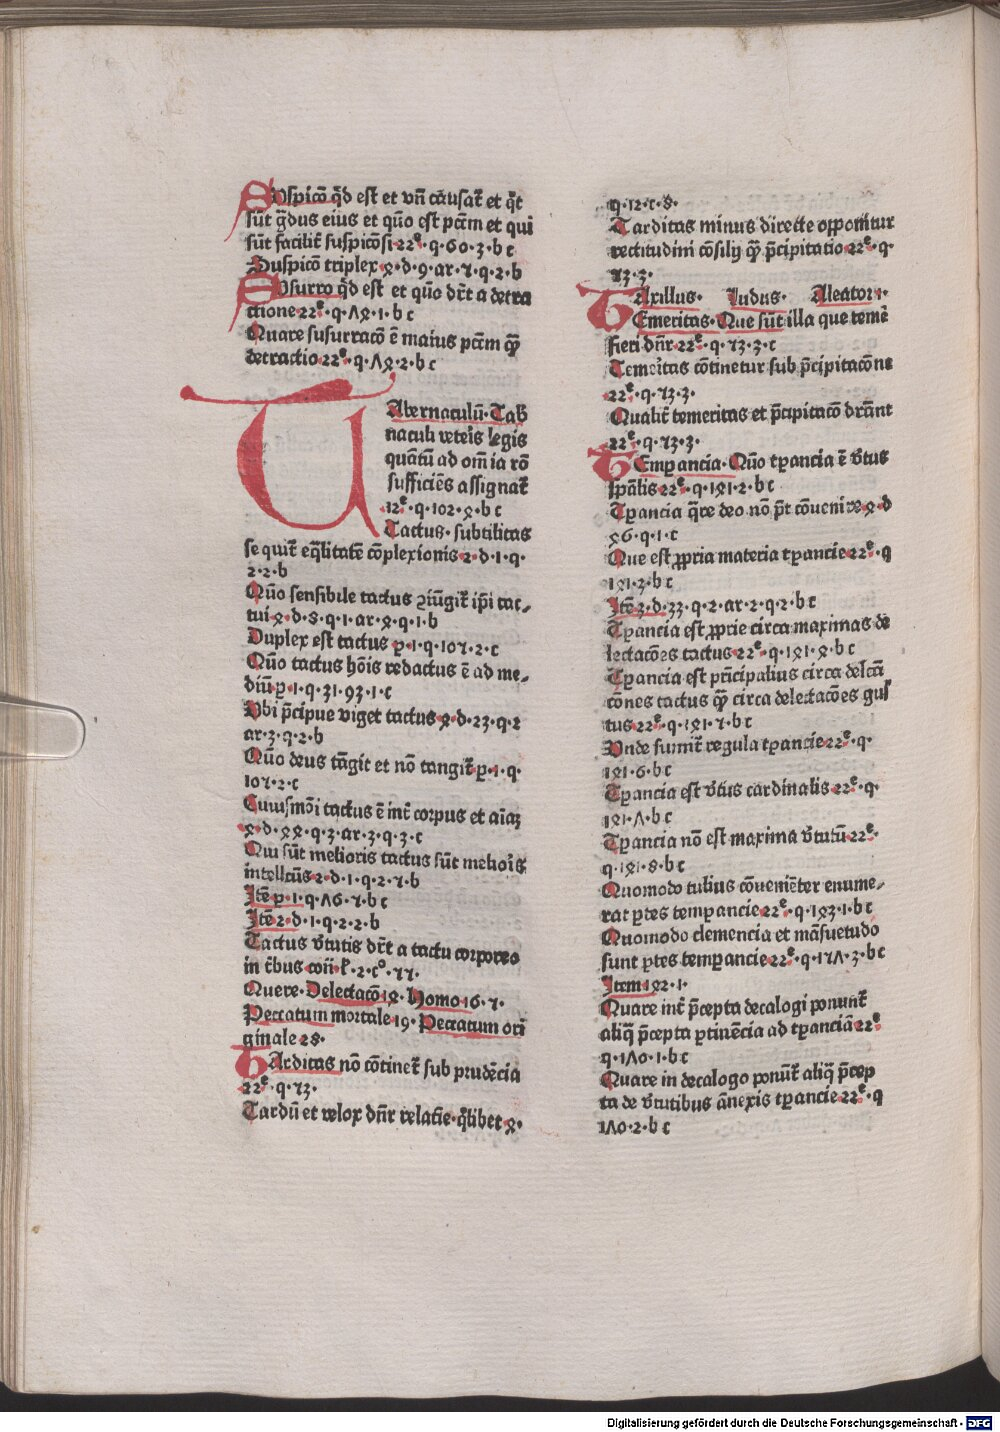 Suspicō qd est et vñ causat̄ et q̄t
sūt gͣdus eius et quō est pctm̄ et qui
sūt facilit̄ suspicōsi 22ͤ·q·60·3·b c
Suspicō triplex 4·d·9·ar·7·q·2·b
Susurro qd est et quō drt̄ a detra
ctione 22ͤ·q·74·1·b c
Quare susurracō ē maius pctm̄ qͫ
detractio 22ͤ·q·74·2·b c
TAbernaculū· Tab̄
naculi vete
is legis
quātū ad om̄ia rō
sufficiēs assignat̄
12ͤ·q·102·4·b c
Tactus· subtilitas
sequit̄ eq̄litatē cōplexionis 2·d·1·q·
2·2·b
Quō sensibile tactus ꝯiūgit̄ ip̄i tac⸗
tui 4·d·8·q·1·ar·4·q·1·b
Duplex est tactus p·1·q·107·2·c
Quō tactus hōis redactus ē ad me⸗
diū p·1·q·31·93·1·c
Vbi p̄cipue viget tactus 4·d·23·q·2
ar·3·q·2·b
Quō deus tāgit et nō tangit̄ p·1·q·
107·2·c
Cuiusmōi tactus ē int̄ corpus et aīaꝫ
4·d·44·q·3·ar·3·q·3·c
Qui sūt melioris tactus sūt melioīs
intellctūs 2·d·1·q·2·7·b
Itē p·1·q·76·7·b c
Itē 2·d·1·q·2·2·b
Tactus v̄tutis drt̄ a tactu corporeo
in
Quere· Delectacō 14· Homo 16·7·
Peccatum mortale 19· Peccatum ori
ginale 28·
TArditas nō cōtinet̄ sub prudēcia
22ͤ·q·73·
Tardū et velox dn̄r relatiē·q̄libet 4·
q·12·c·8·
Tarditas minus directe opponitur
rectitudini cōsilij qͫ p̄cipitatio 22ͤ·q·
73·3·
TAxillus· Ludus· Aleator 1·
TEmeritas· Que sūt illa que temē
fieri dn̄r 22ͤ·q·73·3·c
Temeītas cōtinetur sub p̄cipitacōne
22ͤ·q·73·3·
Qualit̄ temeritas et p̄cipitacō drānt
22ͤ·q·73·3·
TEmpancia· Quō tꝑancia ē v̄tus
spālis 22ͤ·q·141·2·b c
Tꝑancia q̄re deo nō pt̄ cōuenire 4·d
46·q·1·c
Que est ꝓpria materia tꝑancie 22ͤ·q
141·3·b c
Itē 3·d·33·q·2·ar·2·q·2·b c
Tꝑancia est ꝓprie circa maximas de
lectacōes tactus 22ͤ·q·141·4·b c
Tꝑancia est prīcipalius circa delcā
cōnes tactus qͫ circa delectacōes gus
tus 22ͤ·q·141·7·b c
Vnde sumit̄ regula tꝑancie 22ͤ·q·
141·6·b c
Tꝑancia est v̄tus cardinalis 22ͤ·q·
141·7·b c
Tꝑancia nō est maxima v̄tutū 22ͤ·
q·141·8·b c
Quomodo tulius cōueniēter enume⸗
rat ꝑtes tempancie 22ͤ·q·143·1·b c
Quomodo clemencia et māsuetudo
sunt ꝑtes tempancie 22ͤ·q·157·3·b c
Item 142·1·
Quare int̄ p̄cepta decalogi ponunt̄
aliq̄ p̄cepta ꝑtinēcia ad tꝑanciā 22ͤ
q·170·1·b c
Quare in decalogo ponūt̄ aliq̄ p̄cep
ta de v̄tutibus ānexis tꝑancie 22ͤ·q
170·2·b c
Digitalisierung gefördert durch die Deutsche Forschungsgemeinschaft - DFG